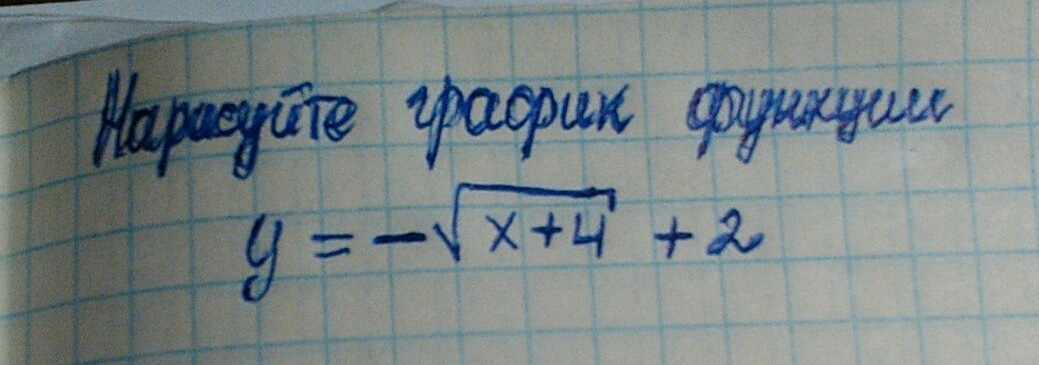 Нарисуйте график функции
y = -√(x+4) + 2